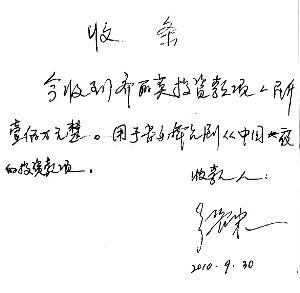 收条
今收到丽英投资款项人民币
壹佰万元整。用于剧中国夜
的投资款项。
收款人:
2010.9.30